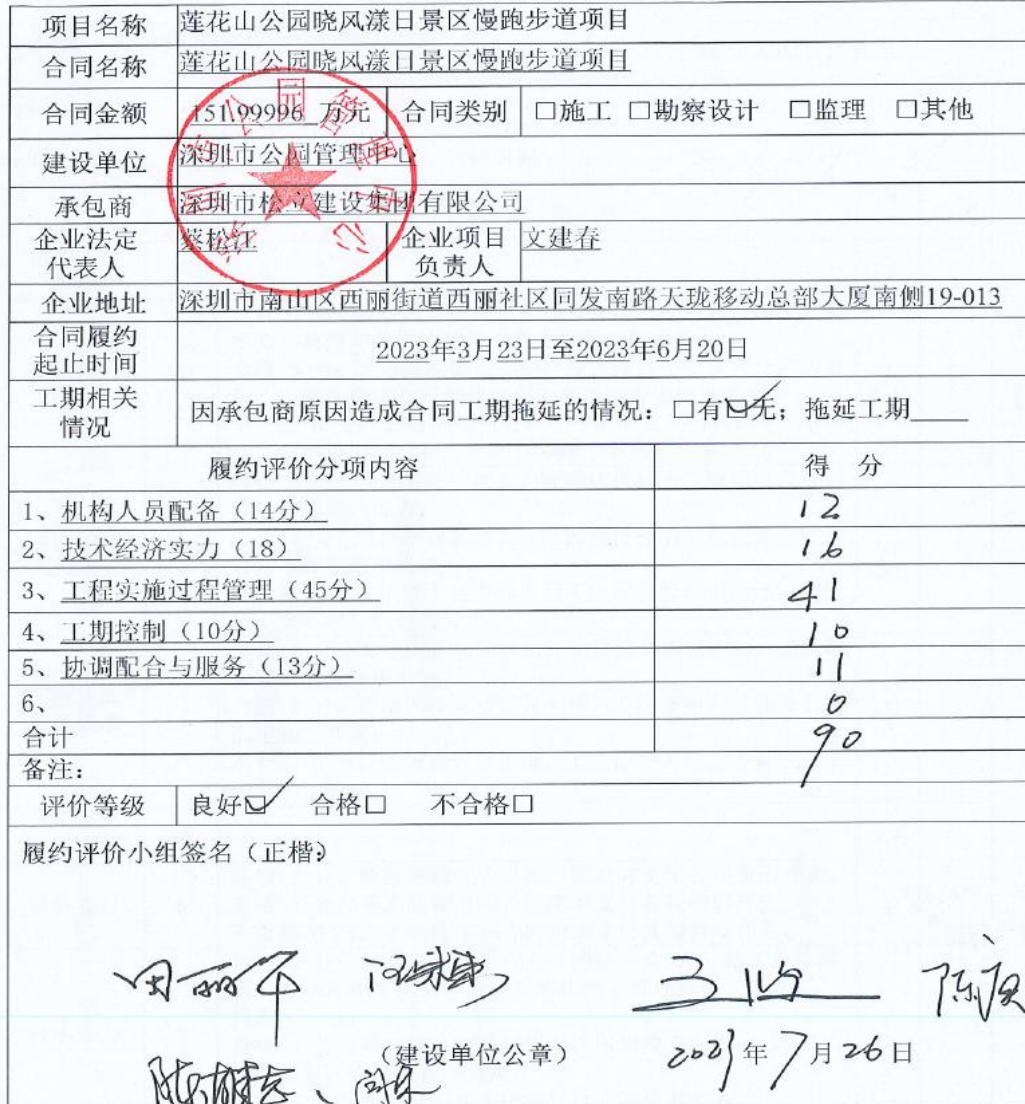 项目名称 莲花山公园晓风漾日景区慢跑步道项目
合同名称 莲花山公园晓风漾日景区慢跑步道项目
合同金额 151.99996 万元 合同类别 □施工 □勘察设计 □监理 □其他
建设单位 深圳市公园管理中心
承包商 深圳市松立建设集团有限公司
企业法定代表人 蔡松江 企业项目负责人 文建春
企业地址 深圳市南山区西丽街道西丽社区同发南路天珑移动总部大厦南侧19-013
合同履约起止时间 2023年3月23日至2023年6月20日
工期相关情况 因承包商原因造成合同工期拖延的情况：□有☑无；拖延工期____
履约评价分项内容 得 分
1、机构人员配备（14分） 12
2、技术经济实力（18） 16
3、工程实施过程管理（45分） 41
4、工期控制（10分） 10
5、协调配合与服务（13分） 11
6、 0
合计 90
备注：
评价等级 良好☑ 合格□ 不合格□
履约评价小组签名（正楷）：
田丽华
（建设单位公章） 2023年7月26日